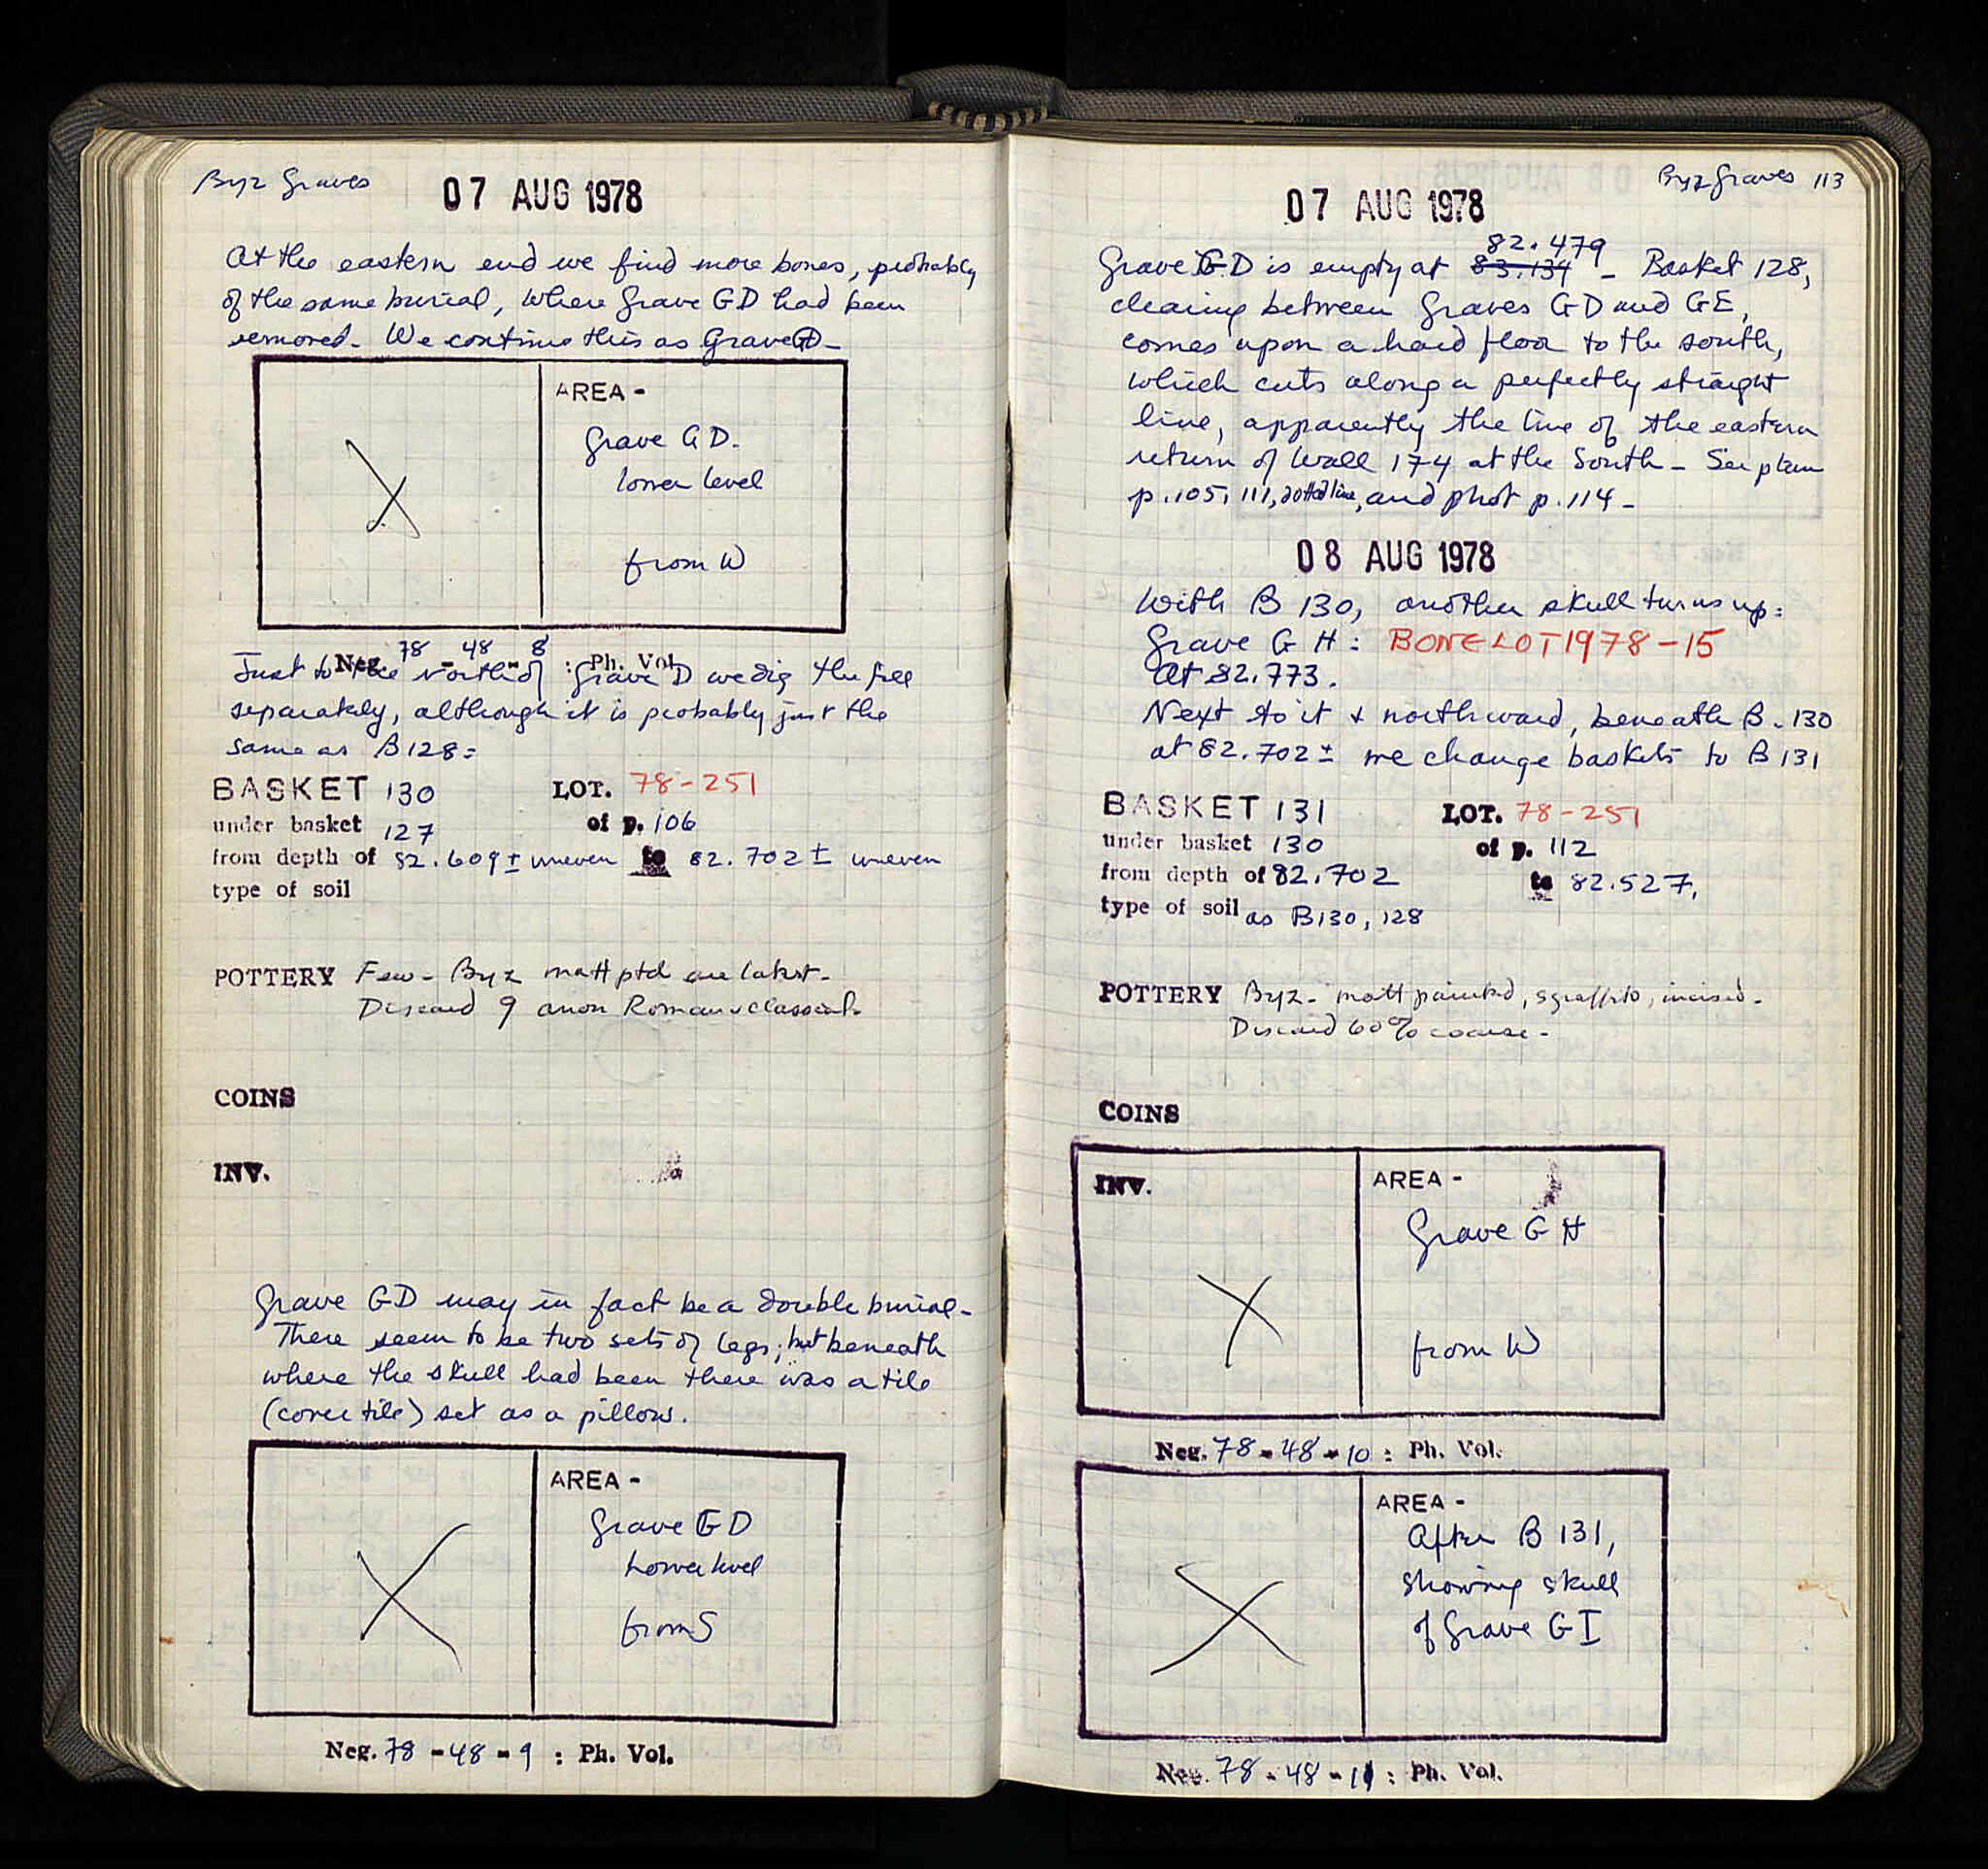 Byz Graves
07 AUG 1978
At the eastern end we find more bones, probably
of the same burial, where Grave GD had been
removed. We continue this as Grave GD -
AREA -
Grave GD.
lower level
from W
Neg. 78 - 48 - 8 : Ph. Vol.
Just to the North of Grave D we dig the fill
separately, although it is probably just the
same as B128:
BASKET 130 LOT. 78-251
under basket 127 of p. 106
from depth of 82.609 ± uneven to 82.702 ± uneven
type of soil
POTTERY Few - Byz matt ptd are latest -
Discard 9 anon Roman & classical.
COINS
INV.
Grave GD may in fact be a double burial -
There seem to be two sets of legs; but beneath
where the skull had been there was a tile
(cover tile) set as a pillow.
AREA -
Grave GD
Lower level
from S
Neg. 78 - 48 - 9 : Ph. Vol.
Byz Graves 113
07 AUG 1978
82.479
Grave GD is empty at 83.134 - Basket 128,
clearing between Graves GD and GE,
comes upon a hard floor to the south,
which cuts along a perfectly straight
line, apparently the line of the eastern
return of Wall 174 at the South - See plan
p. 105, 111, dotted line, and phot p. 114 -
08 AUG 1978
With B 130, another skull turns up:
Grave GH: BONE LOT 1978-15
At 82.773.
Next to it & northward, beneath B. 130
at 82.702 ± we change baskets to B 131
BASKET 131 LOT. 78-251
under basket 130 of p. 112
from depth of 82.702 to 82.527,
type of soil as B130, 128
POTTERY Byz - matt painted, sgraffito, incised -
Discard 60% coarse -
COINS
INV.
AREA -
Grave GH
from W
Neg. 78 - 48 - 10 : Ph. Vol.
AREA -
After B 131,
showing skull
of Grave GI
Neg. 78 - 48 - 11 : Ph. Vol.